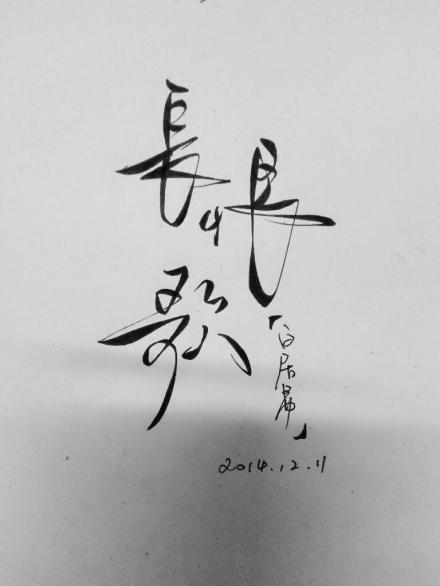 長恨
歌
「白居易」
2014.12.11